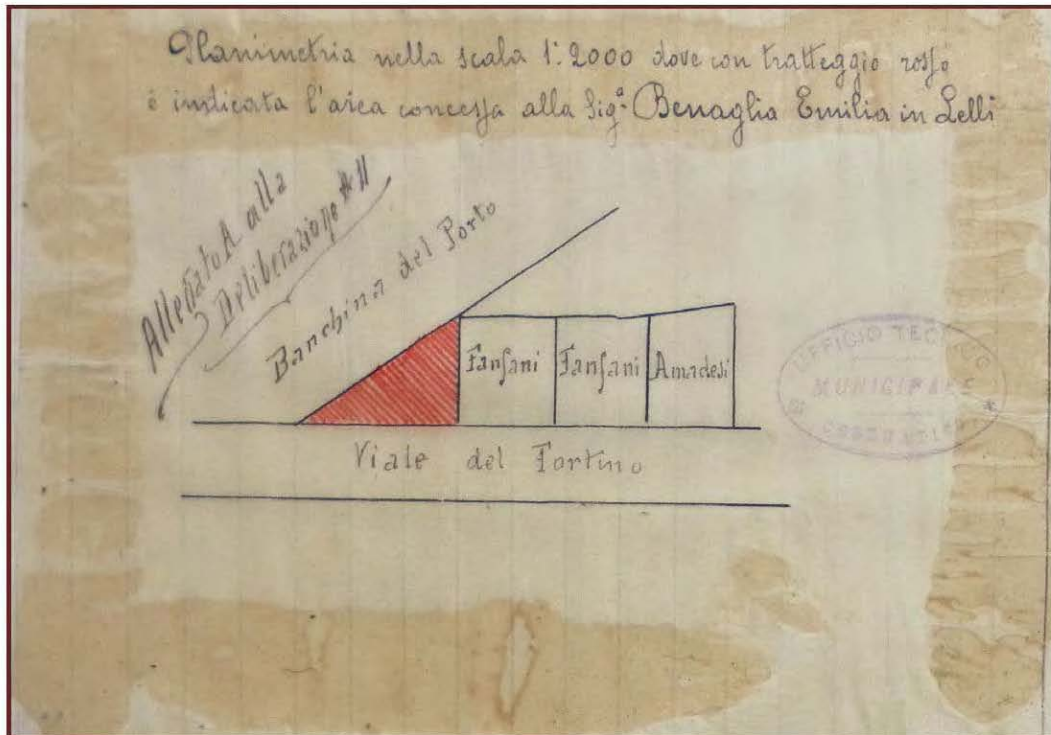 Planimetria nella scala 1:2000 dove con tratteggio rosso
è indicata l'area concessa alla Sigª Benaglia Emilia in Lelli
Allegato A alla
Deliberazione
Banchina del Porto
Fanfani
Fanfani
Amadesi
Viale del Fortino
UFFICIO TECNICO
MUNICIPALE
CESENATICO